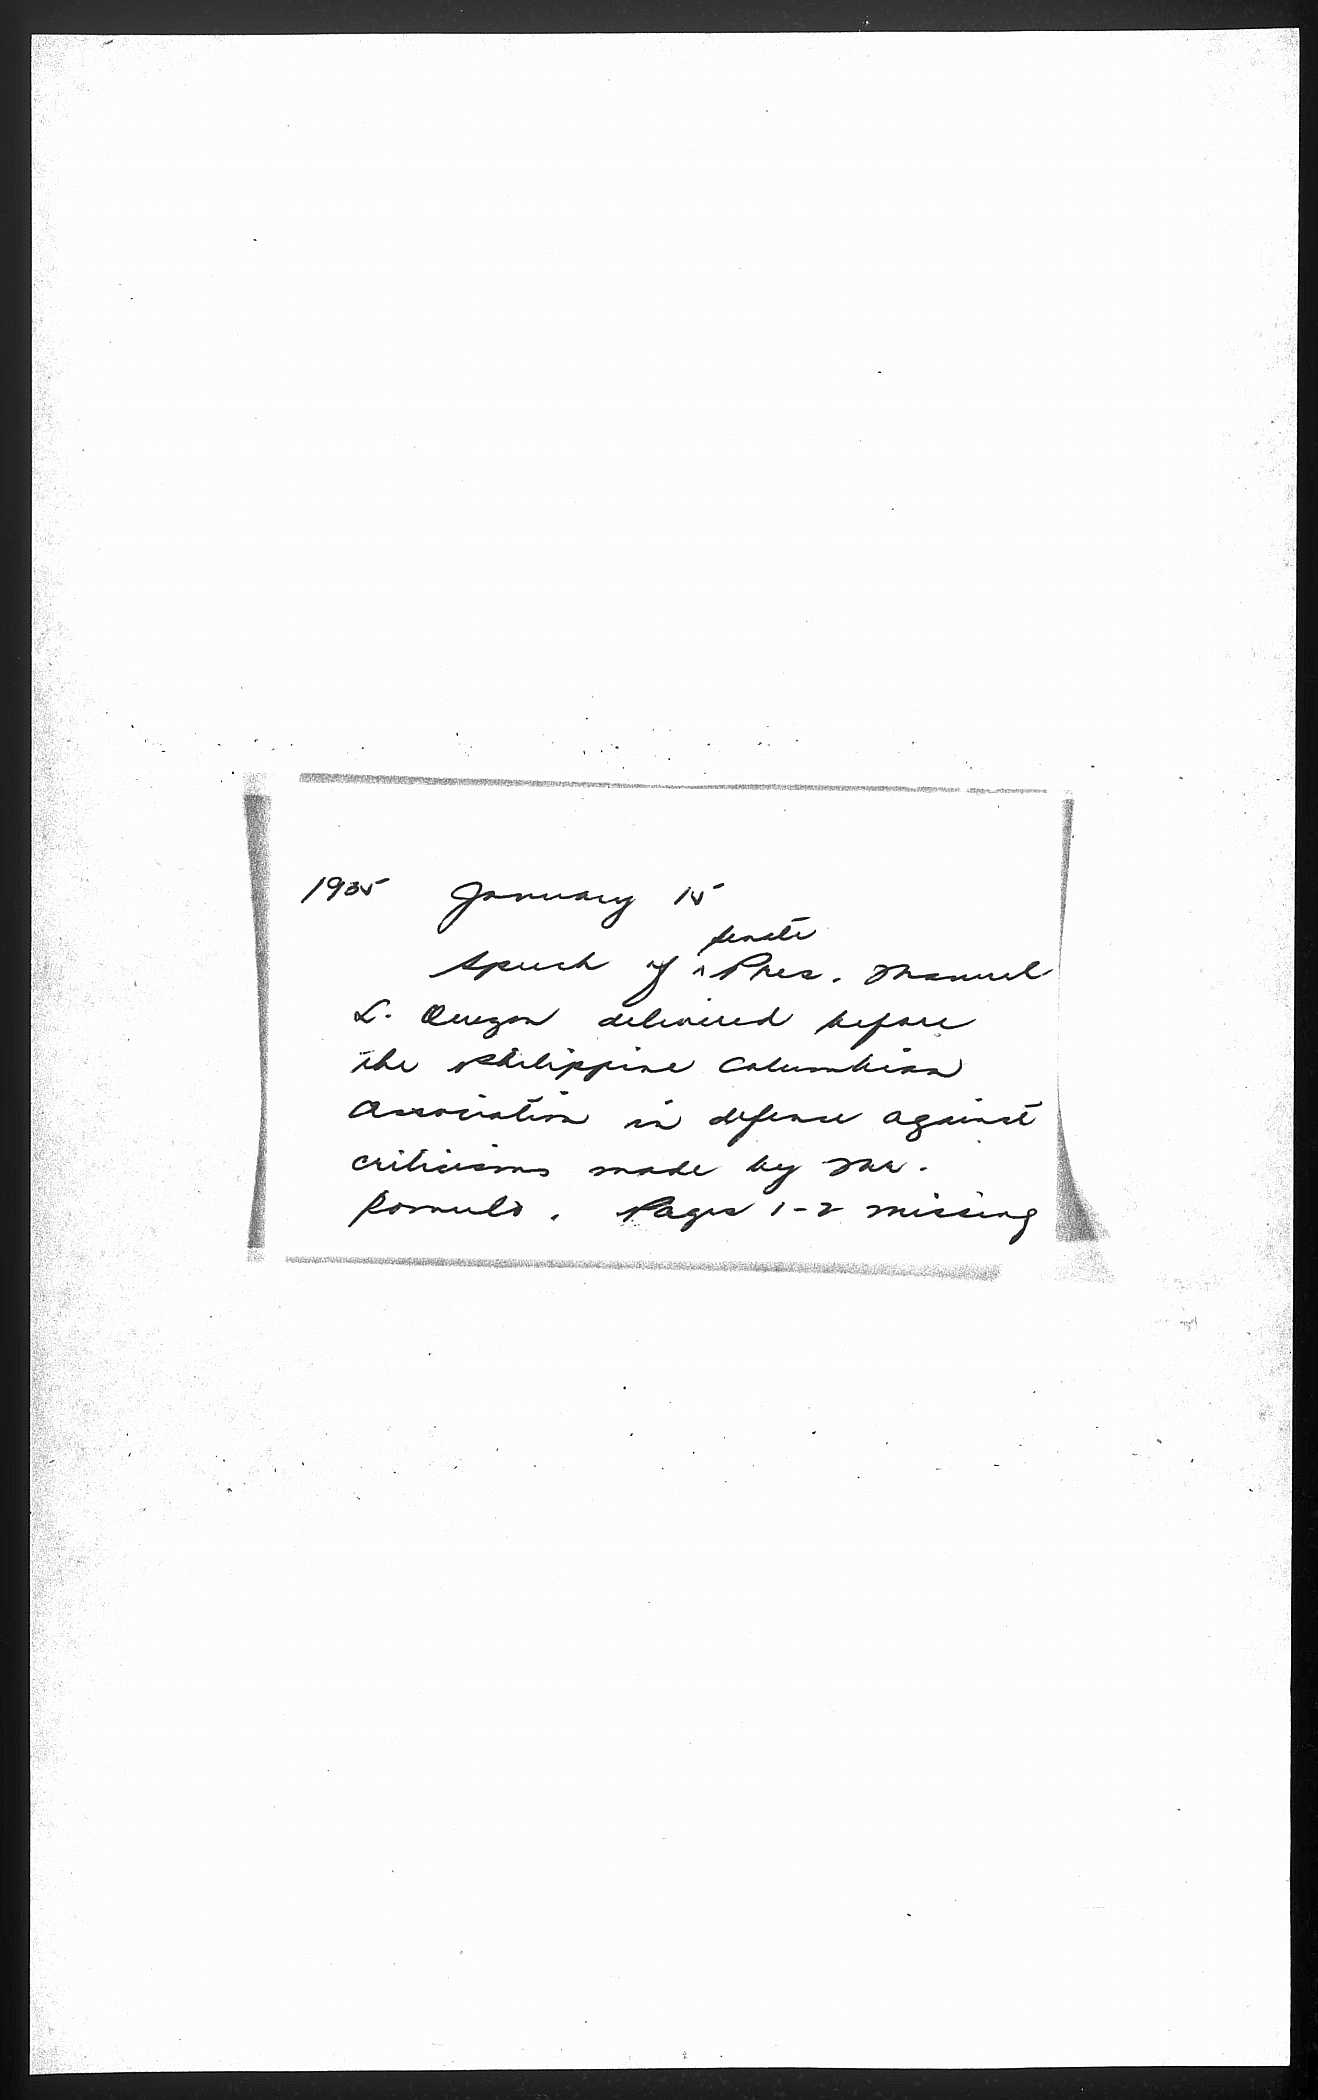 1935 January 15
senate
Speech of ^ Pres. Manuel
L. Quezon delivered before
the Philippine Columbian
Association in defense against
criticisms made by Mr.
Romulo. Pages 1-2 missing